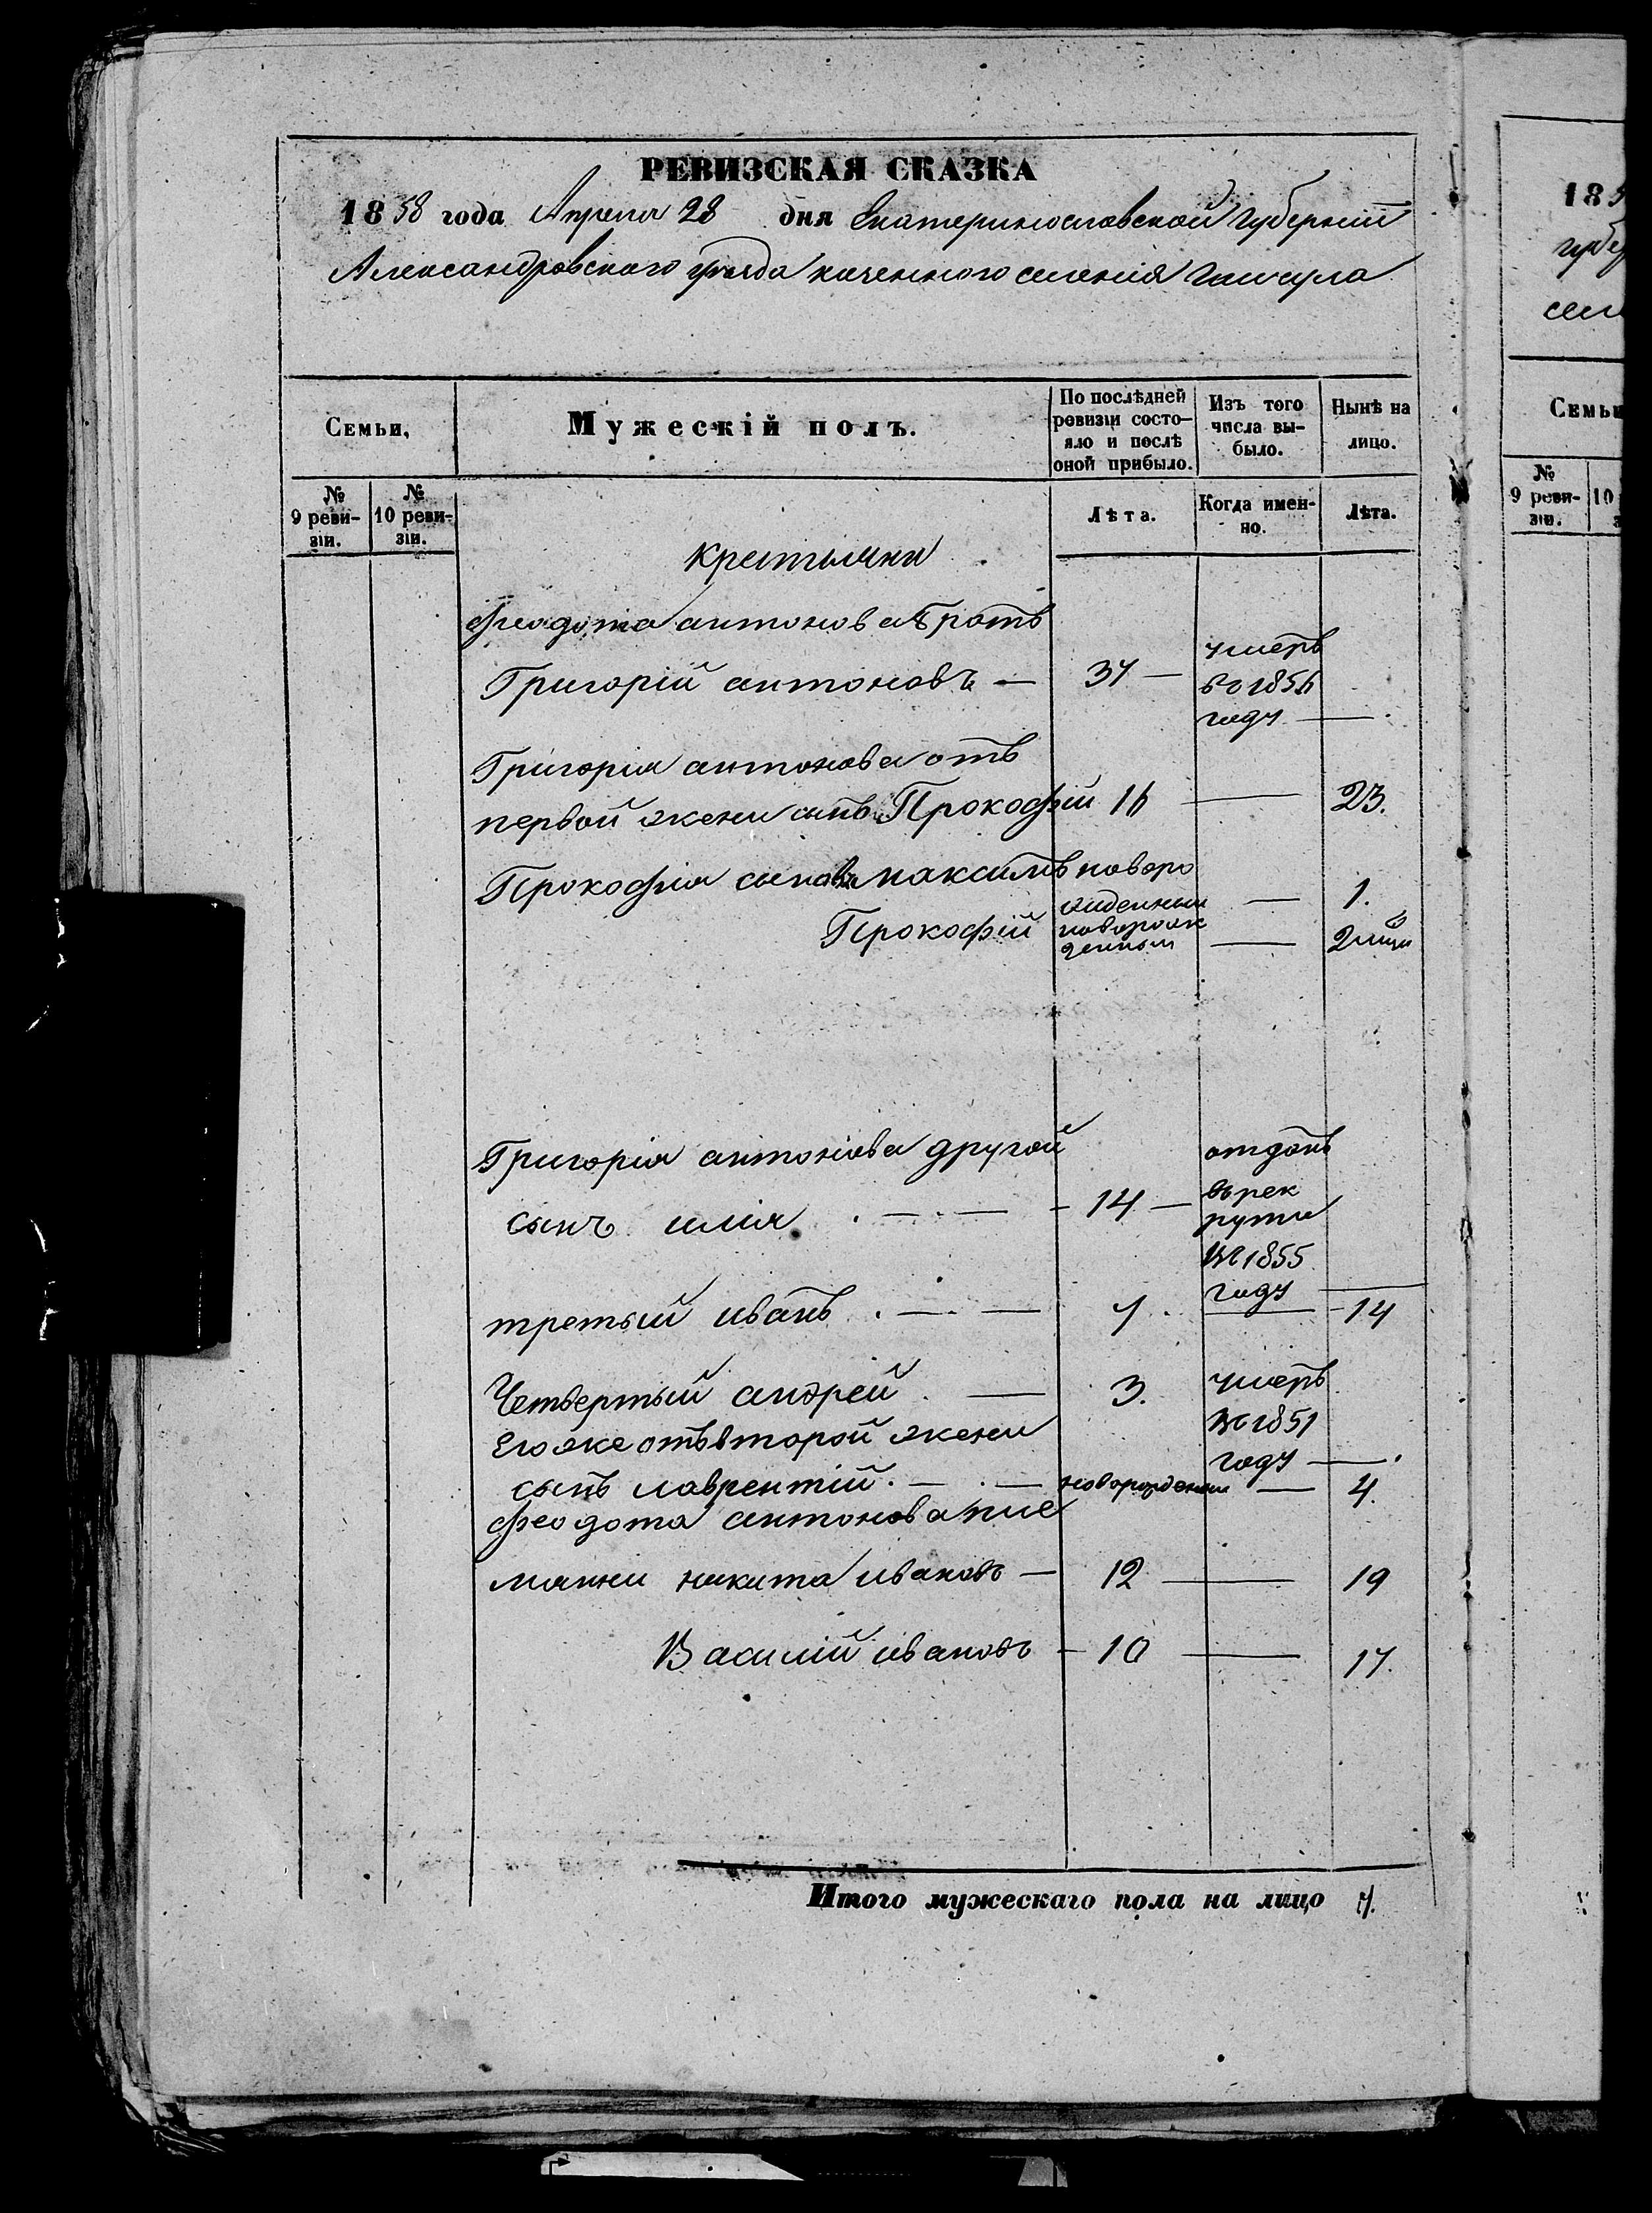 РЕВИЗСКАЯ СКАЗКА
1858 года Апреля 28 дня Екатеринославской губернии
Александровского уезда казенного селения Гайчула
Семьи,
Мужескій полъ.
По послѣдней ревизіи состо-
яло и послѣ
оной прибыло.
Изъ того
числа вы-
было.
Нынѣ на
лицо.
№
9 реви-
зіи.
№
10 реви-
зіи.
Лѣта.
Когда имен-
но.
Лѣта.
крестьяни
Феодота антонова братъ
умеръ
Григорій антоновъ — 37 — во 1856
году — .
Григорія антонова отъ
первой жени сынъ Прокофій 16 — 23.
Прокофия синовя максимъ новоро
жденный — 1.
Прокофій новорож
денный — 2 мцы
Григорія антонова другой
отданъ
сынъ илія . — — 14 — въ рек
руты
Въ 1855
году —
третьій иванъ . — — 7. — 14
Четвертый андрей . — 3. умеръ
Его же отъ второй жени
Въ 1851
году — .
сынъ лаврентій . — . — новорожденни — 4.
Феодота антонова пле
мянни никита ивановъ — 12 — 19
Василій ивановъ — 10 — 17.
Итого мужескаго пола на лицо 7.
185
губе
сел
Семьи
№
9 реви-
зіи.
10